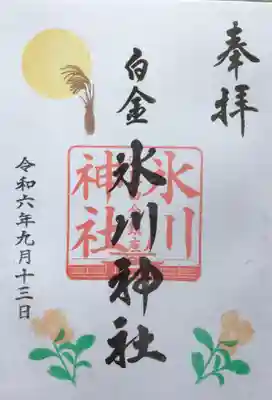 奉拝
白金
氷川神社
氷川
神社
令和六年九月十三日